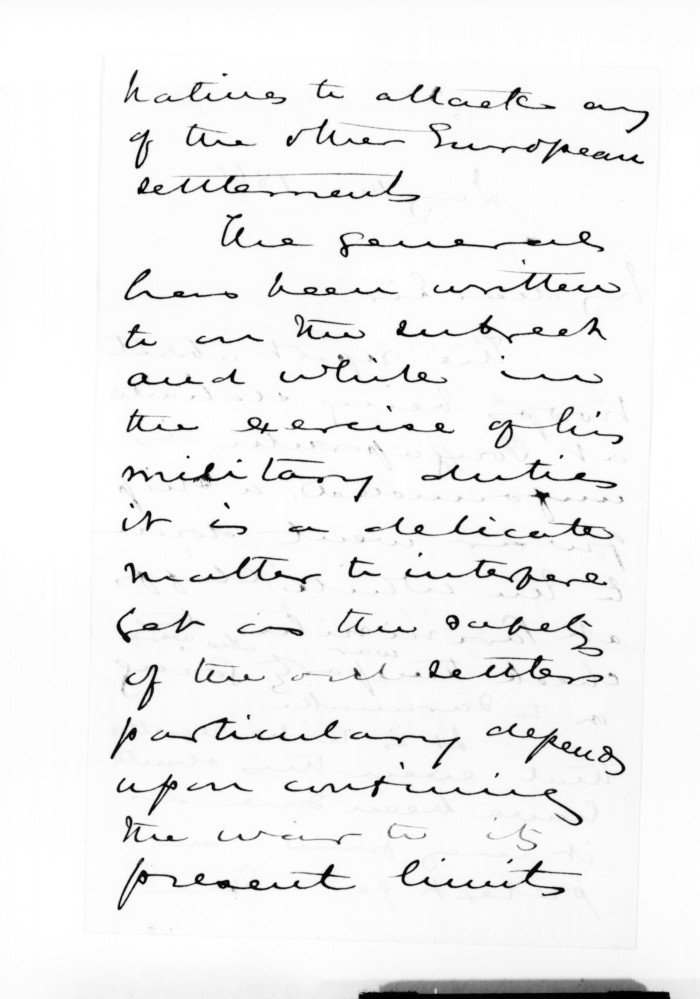 natives to attack any
of the other European
settlements
The general
has been written
to on the subject
and while in
the exercise of his
military duties
it is a delicate
matter to interfere
yet as the safety
of the out settlers
particulary depends
upon confining
the war to its
present limits